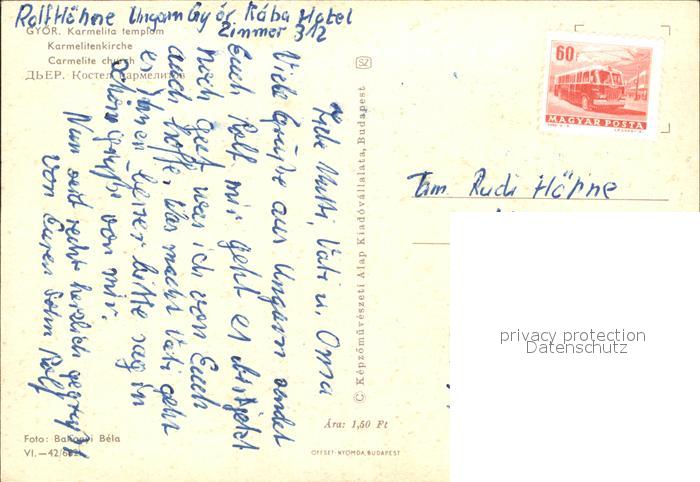 Rolf Höhne Ungarn Györ Rába Hotel
Zimmer 312
GYŐR. Karmelita templom
Karmelitenkirche
Carmelite church
ДЬЕР. Костел кармелитов
Liebe Mutti, Vati u. Oma
Viele Grüße aus Ungarn sendet
Euch Rolf. mir geht es bis jetzt
noch gut was ich von Euch
auch hoffe. Was macht Vati geht
es ihm besser bitte sag in
schöne grüße von mir.
Nun seit recht herzlich gegrüßt
von Euren Sohn Rolf
Foto: Bakonyi Béla
VI.—42/682
SZ
© Képzőművészeti Alap Kiadóvállalata, Budapest
Ára: 1,50 Ft
OFFSET-NYOMDA, BUDAPEST
60f
MAGYAR POSTA
Fam. Rudi Höhne
privacy protection
Datenschutz